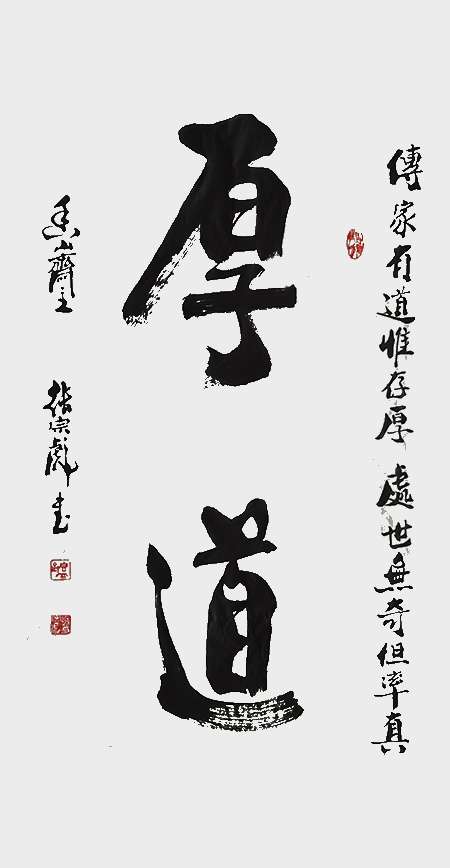 傳家有道惟存厚 處世無奇但率真
厚道
山齋主 張宗彪書